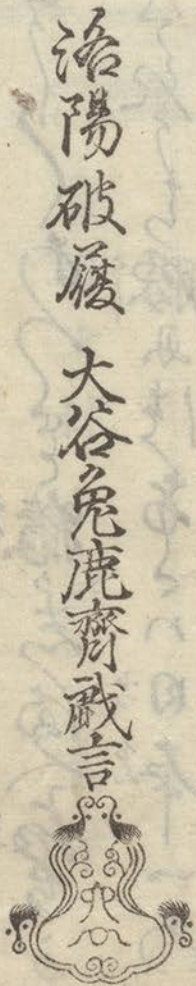 洛陽破屨 大谷兔鹿齋戲言